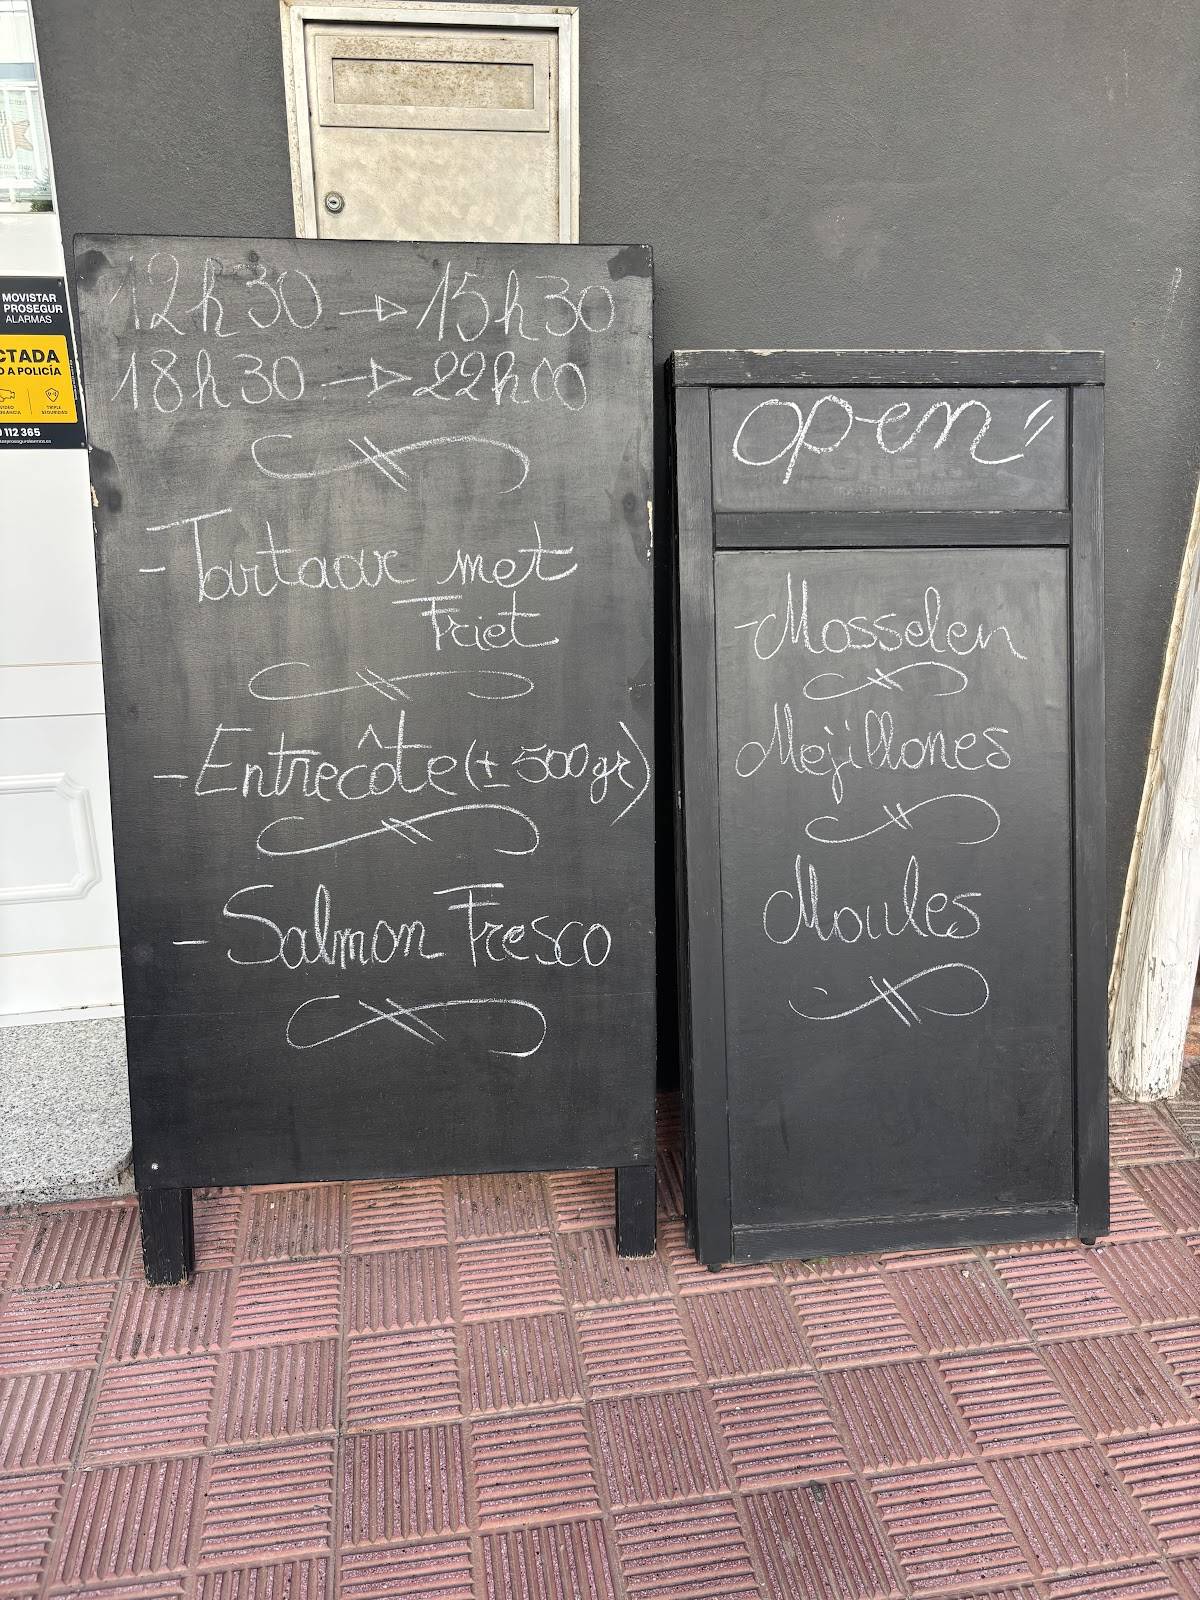 MOVISTAR
PROSEGUR
ALARMAS
CTADA
O A POLICÍA
TRIPLE
SEGURIDAD
112 365
12h30 → 15h30
18h30 → 22h00
- Tartaar met
Friet
- Entrecôte (± 500gr)
- Salmon Fresco
open
- Mosselen
Mejillones
Moules